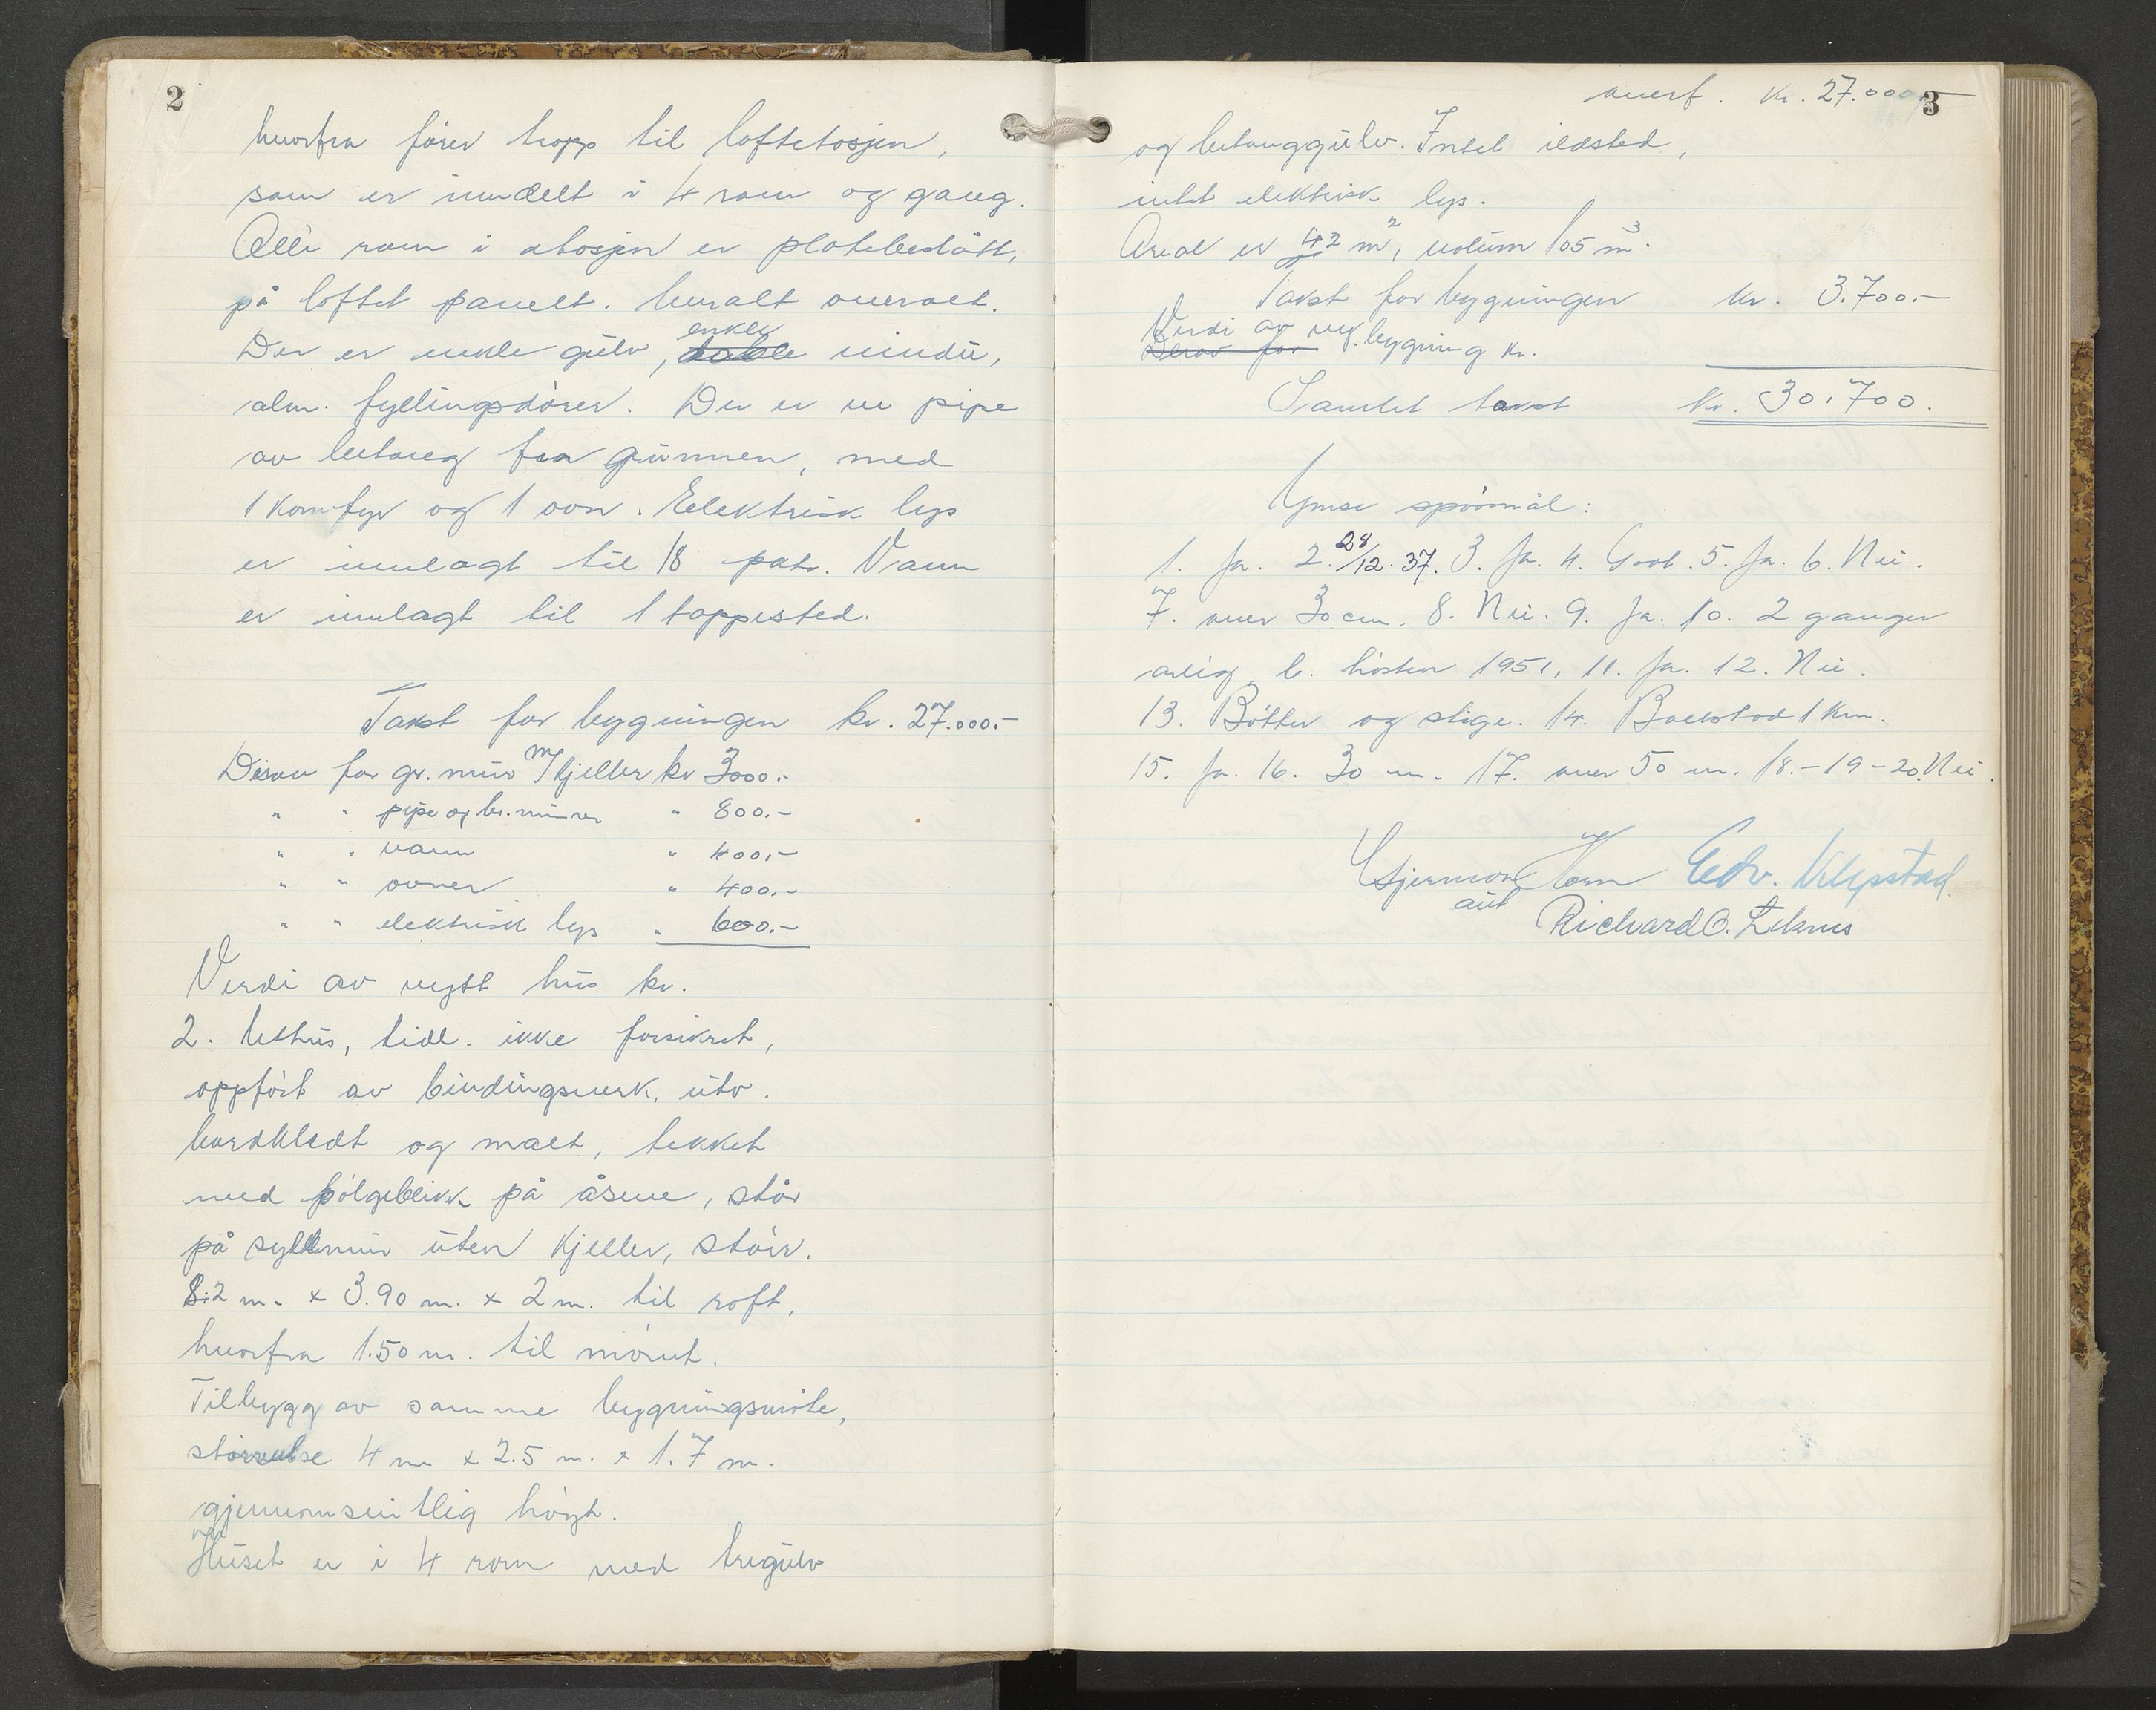 2
hvorfra fører trapp til loftetasjen,
som er inndelt i 4 rom og gang.
Alle rom i etasjen er platebeslått,
på loftet panelt. Umalt overalt.
Der er enkle gulv, enkle doble vindu,
alm. fyllingsdører. Der er en pipe
av betong fra grunnen, med
1 komfyr og 1 ovn. Elektrisk lys
er innlagt til 18 pktr. Vann
er innlagt til 1 tappested.
Takst for bygningen kr. 27.000.-
Derav for gr. mur m/kjeller kr 3000.-
" " pipe og br. murer " 800.-
" " vann " 400.-
" " ovner " 400.-
" " elektrisk lys " 600.-
Verdi av nytt hus kr.
2. Uthus, tidl. ikke forsikret,
oppført av bindingsverk, utv.
bordkledt og malt, tekket
med bølgeblikk på åsene, står
på syllmur uten kjeller, størr.
8.2 m. x 3.90 m. x 2 m. til roft,
hvorfra 1.50 m. til mønet.
Tilbygg av samme bygningsmåte,
størrelse 4 m x 2.5 m. x 1.7 m.
gjennomsnitlig høgt.
Huset er i 4 rom med tregulv
3
overf. kr. 27.000,-
og betonggulv. Intet ildsted,
intet elektrisk lys.
Areal er 42 m², volum 105 m³.
Takst for bygningen kr. 3.700.-
Verdi av ny bygning kr.
Derav for
Samlet takst kr. 30.700.
Ymse spørsmål:
1. Ja. 2. 28/12.37. 3. Ja. 4. Godt. 5. Ja. 6. Nei.
7. over 30 cm. 8. Nei. 9. Ja. 10. 2 ganger
årlig, b. høsten 1951, 11. Ja. 12. Nei.
13. Bøtter og stige. 14. Ballstad 1 km.
15. Ja. 16. 30 m. 17. over 50 m. 18.-19-20. Nei.
Gjermon Horn Edv. Villpstad.
aut
Richard O. Leknes